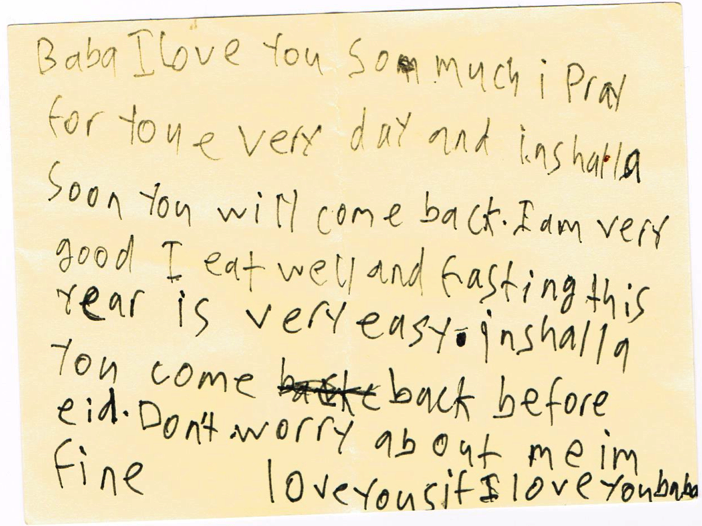 Baba I Love You So much i Pray
for You every day and inshalla
Soon You will come back. I am very
good I eat well and fasting this
Year is very easy. inshalla
You come back before
eid. Don't worry about me im
fine love You I love You baba